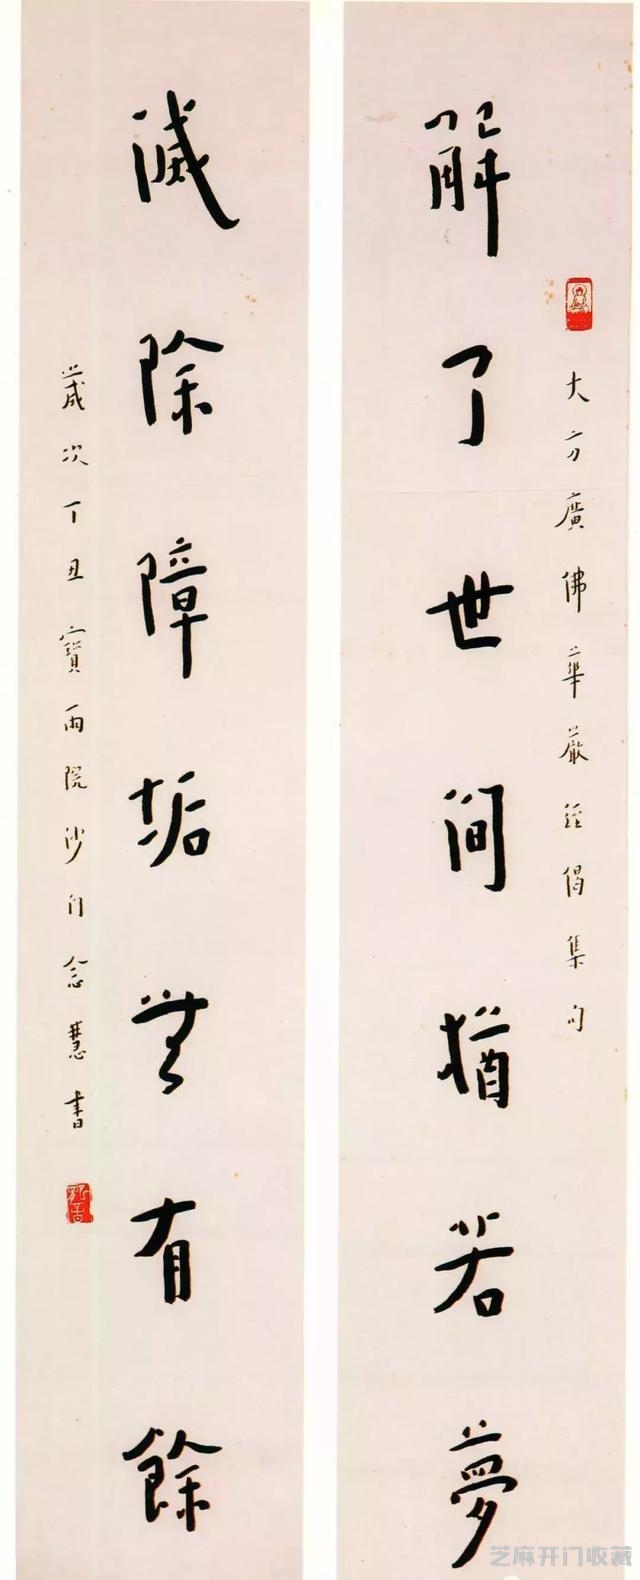 大方廣佛華嚴經偈集句
解了世間猶若夢
滅除障垢無有餘
歲次丁丑寶雨院沙門念慧書
芝麻开门收藏